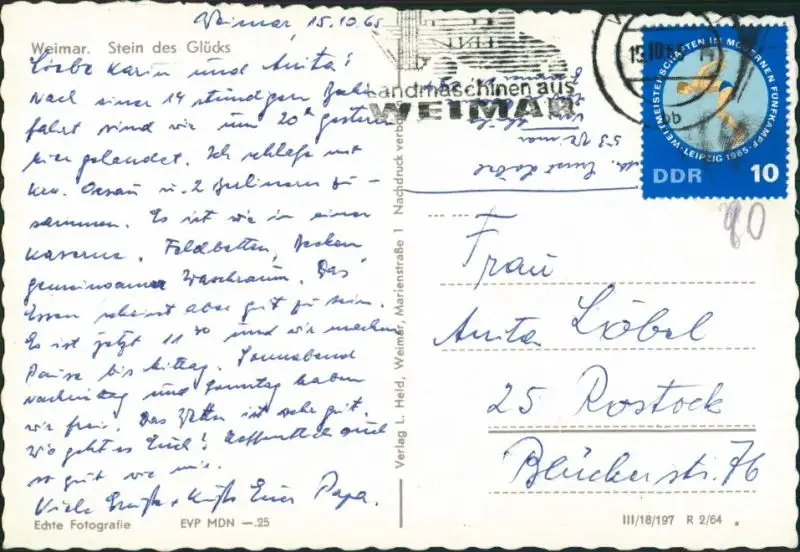 Weimar, 15.10.65
Weimar. Stein des Glücks
Liebe Karin und Anita!
Nach einer 14 stündigen Bahn-
fahrt sind wir um 20⁰⁰ gestern
hier gelandet. Ich schlafe mit
u. 2 Berlinern zu-
sammen. Es ist wie in einer
Kaserne. Feldbetten, Decken
gemeinsamer Waschraum. Das
Essen scheint aber gut zu sein.
Es ist jetzt 11³⁰ und wir machen
Pause bis Mittag. Sonnabend
Nachmittag und Sonntag haben
wir frei. Das Wetter ist sehr gut.
Wie geht es Euch? Hoffentlich auch
so gut wie mir.
Viele Grüße + Küße Euer Papa.
Echte Fotografie EVP MDN —.25
Verlag L. Held, Weimar, Marienstraße 1 Nachdruck verboten
Landmaschinen aus
WEIMAR
15.10.65
b
53 Weimar
Löbel
WELTMEISTERSCHAFTEN IM MODERNEN FÜNFKAMPF · LEIPZIG 1965
DDR 10
90
Frau
Anita Löbel
25 Rostock
Blücherstr. 76
III/18/197 R 2/64